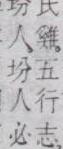 氏雞。五行志、
坋人、坋人必